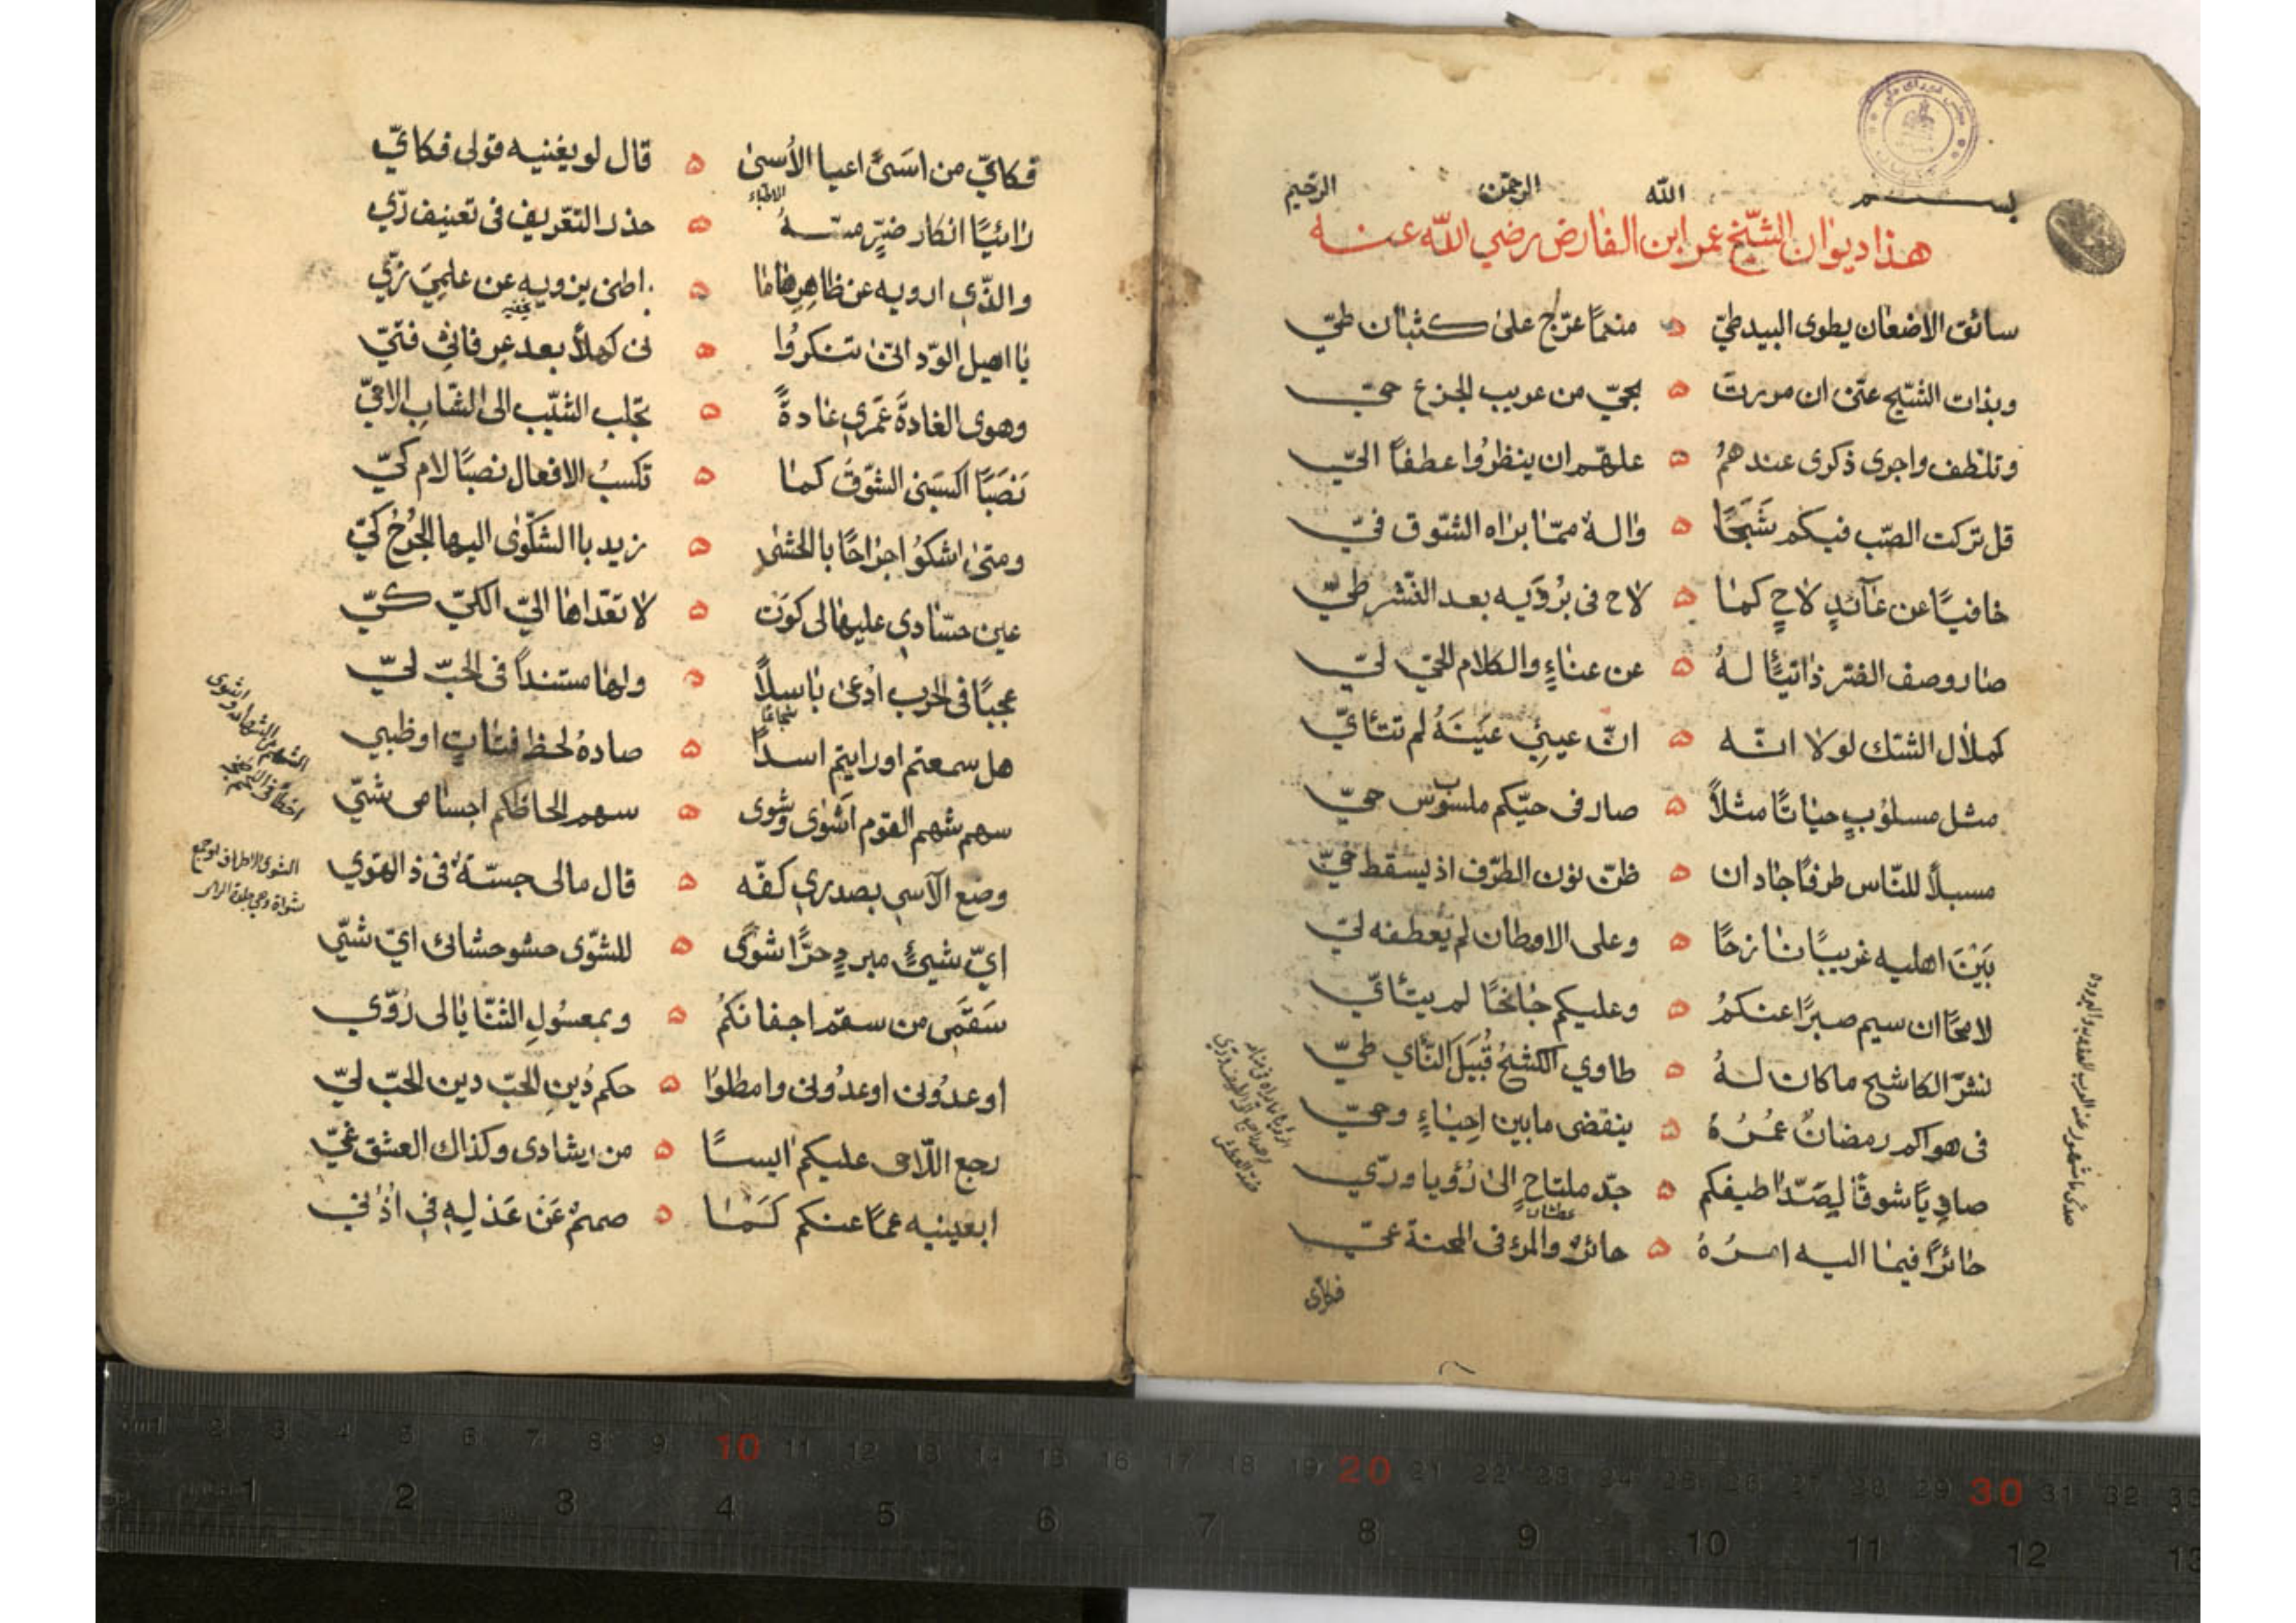 بسم الله الرحمن الرحيم
هذا ديوان الشيخ عمر ابن الفارض رضي الله عنه
سائق الاضعان يطوى البيد طيّ ۵ منعمًا عرّج على كثبان طيّ
وبذات الشّيح عنّى ان مررت ۵ بحيّ من عريب الجزع حيّ
وتلطّف واجرى ذكرى عندهمُ ۵ علهّم ان ينظرُوا عطفاً اليّ
قل تركت الصّب فيكم شَبَحًا ۵ والهٌ ممّا براه الشّوق فيّ
خافيًا عن عآئدٍ لاحٍ كما ۵ لاح فى بُردَيه بعد النّشر طيّ
صار وصف الضّر ذاتيًّا لهُ ۵ عن عناءٍ والكلام الحيّ ليّ
كهلال الشّك لولا انّه ۵ انّ عينِي عَينَهُ لم تتأيّ
مثل مسلُوبٍ حياتًا مثلاً ۵ صار فى حبّكم ملسوب حيّ
مسبلاً للنّاس طرفًا جاد ان ۵ ظنّ نون الطّرف اذ يسقط خيّ
بَيْنَ اهليه غريبًا نازحًا ۵ وعلى الاوطان لم يُعطفه ليّ
لامحًا ان سيم صبرًا عنكمُ ۵ وعليكم جانحًا لم يتأيّ
نشرّ الكاشح ماكان لهُ ۵ طاوي الكشح قُبيَلَ النّأي طيّ
فى هواكم رمضانٌ عمُرُهُ ۵ ينقضى مابين احِياءٍ وطيّ
صادِيًا شوقًا لِصَدّا طيفكم ۵ جدّ ملتاحٍ الى رُؤيا وريّ
عطشان
حائرًا فيما اليه امرُهُ ۵ حائرٌ والمرء فى المحنة عيّ
فكاىّ
فكايّ من اسَىً اعيا الأُسىٰ ۵ قال لو يغنيه قولى فكايّ
الاطباء
رائيًا انكار ضرٍّ مسّهُ ۵ حذر التّعريف فى تعنيف ريّ
والذّي ارويه عن ظاهِرِها ما ۵ باطنى يزويه عن علميَ زيّ
يا اهيل الودّ انّى تنكرُوا ۵ نى كهلاً بعد عِرفانِي فتيّ
وهوى الغادَةَ عَمرِي عادةً ۵ يجلب الشيّب الى الشّابِ الاحيّ
نَصَبًا اكسبنى الشّوقُ كما ۵ تكسبُ الافعال نصبًا لام كيّ
ومتى اشكوُ اجراحًا بالحشى ۵ زيد باالشكّوى اليها الجُرحُ كيّ
عين حسّادي عليها لى كوَت ۵ لا تعدّاها اليّ الكيّ كيّ
عجبًا فى الحرب اُدعىٰ باسلاً ۵ ولها مستنداً فى الحبّ ليّ
شجاعا
هل سمعتم اورايتم اسداً ۵ صادهُ لحظ فتاتٍ اوظبي
سهم شهم القوم اَشوٰى وشوى ۵ سهم الحاظكم احشامى شيّ
وضع الآسي بصدري كفّه ۵ قال مالى جسّةٌ فى ذالهوي
ايّ شيئٍ مبردٍ حرًّا شوًى ۵ للشّوى حشو حشائى ايّ شيّ
سَقَمي من سقم اجفانكمُ ۵ وبمعسُولِ الثنّايا لى رُوّي
اوعدُونى اوعدُونى وامطلوُا ۵ حكم دُينِ الحبّ دين الحبّ ليّ
رجع اللّاحى عليكم ايسًا ۵ من رشادى وكذاك العشق غيّ
ابعينيه عماً عنكم كَمَا ۵ صممٌ عَن عَذلِه فِي اُذُنّي